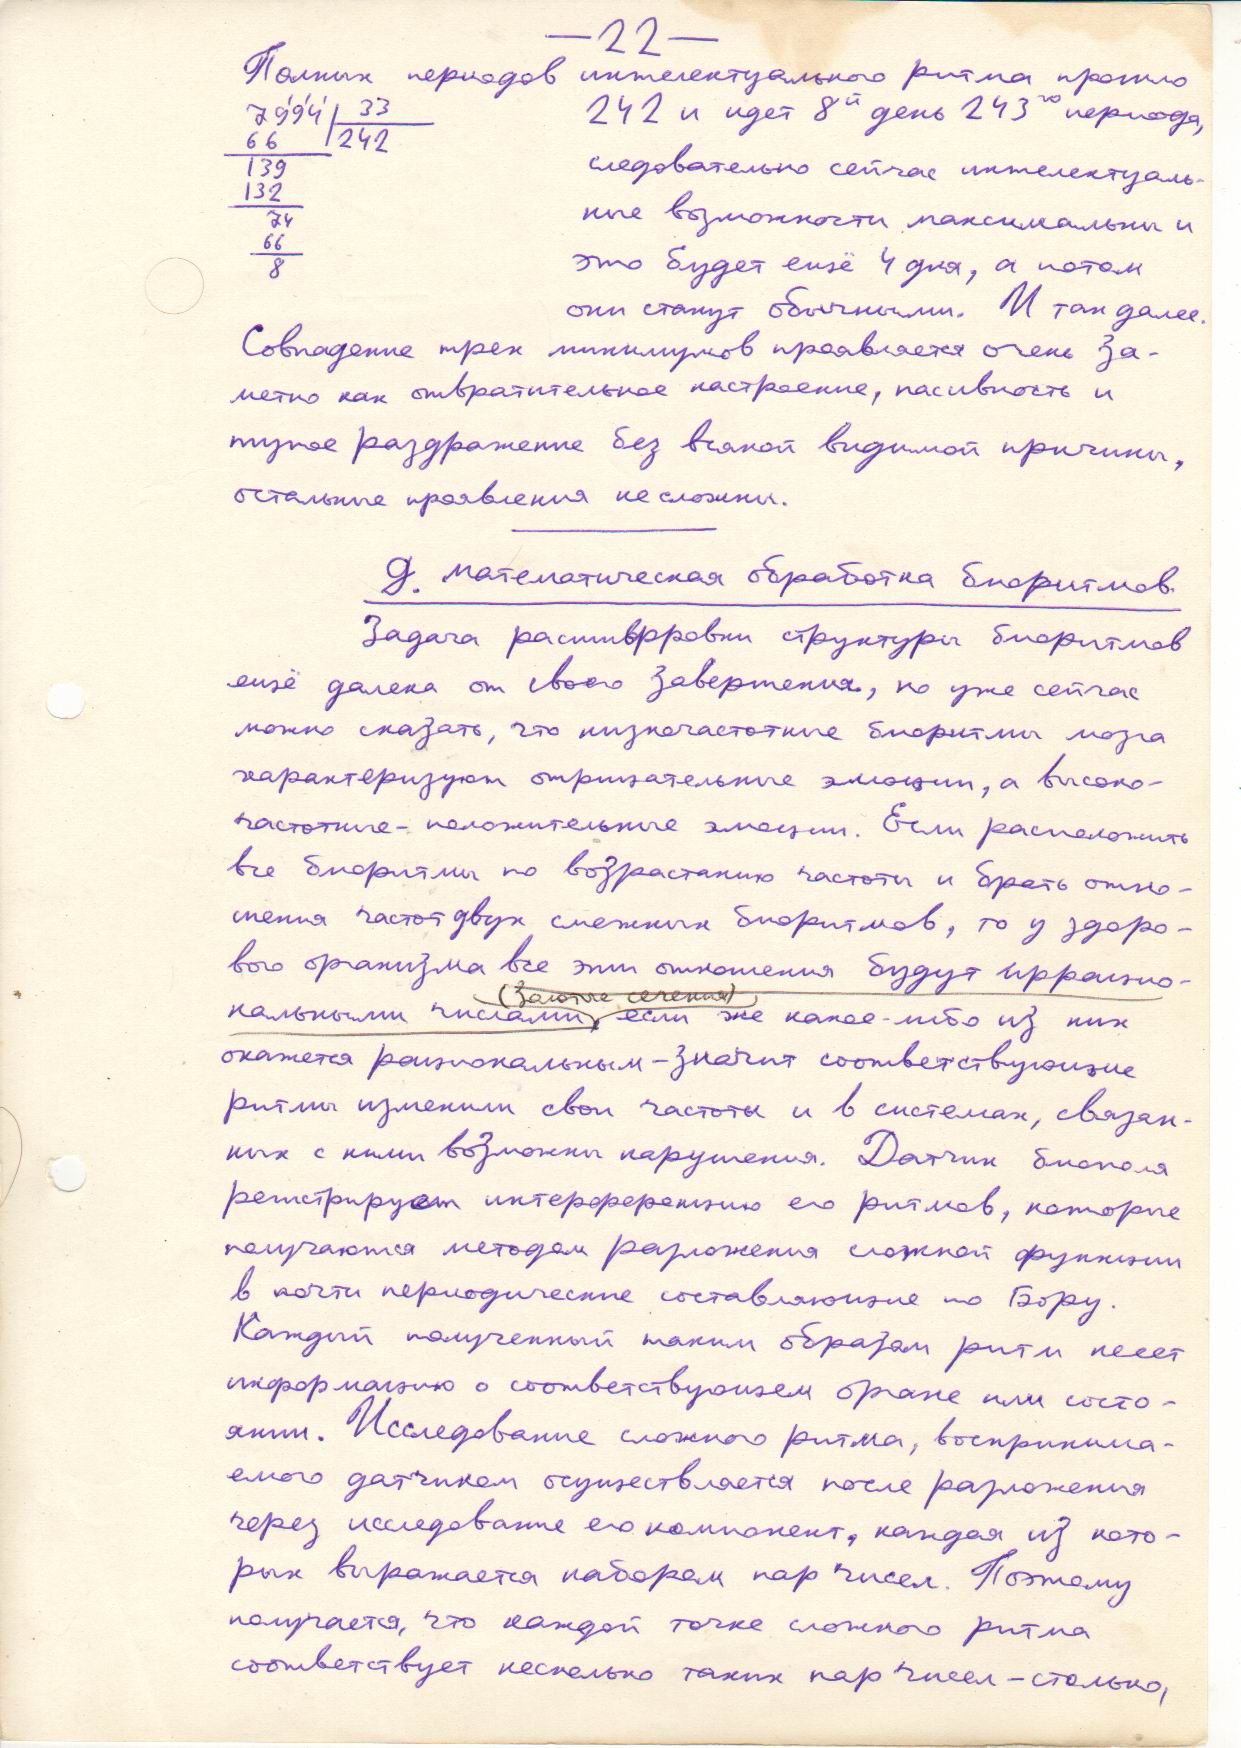 —22—
Полных периодов интелектуального ритма прошло
7994 | 33
242 и идет 8й день 243го периода,
66 | 242
139
следовательно сейчас интелектуаль-
132
ные возможности максимальны и
74
66
это будет ещё 4 дня, а потом
8
они станут обычными. И так далее.
Совпадение трех минимумов проявляется очень за-
метно как отвратительное настроение, пасивность и
тупое раздражение без всякой видимой причины,
остальные проявления несложны.
Д. Математическая обработка биоритмов.
Задача расшивровки структуры биоритмов
ещё далека от своего завершения, но уже сейчас
можно сказать, что низкочастотные биоритмы мозга
характеризуют отрицательные эмоции, а высоко-
частотные - положительные эмоции. Если расположить
все биоритмы по возрастанию частоты и брать отно-
шения частот двух смежных биоритмов, то у здоро-
вого организма все эти отношения будут иррацио-
(Золотые сечения)
нальными числами, если же какое-либо из них
окажется рациональным - значит соответствующие
ритмы изменили свои частоты и в системах, связан-
ных с ними возможны нарушения. Датчик биополя
регистрирует интерференцию его ритмов, которые
получаются методом разложения сложной функции
в почти периодические составляющие по Бору.
Каждый полученный таким образом ритм несет
информацию о соответствующем органе или состо-
янии. Исследование сложного ритма, воспринима-
емого датчиком осуществляется после разложения
через исследование его компонент, каждая из кото-
рых выражается набором пар чисел. Поэтому
получается, что каждой точке сложного ритма
соответствует несколько таких пар чисел - столько,